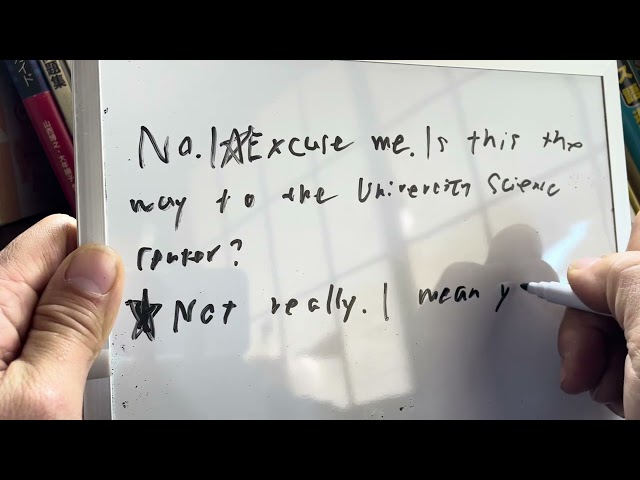 No.1☆Excuse me. Is this the
way to the University Science
center?
★Not really. I mean y
イド
題集